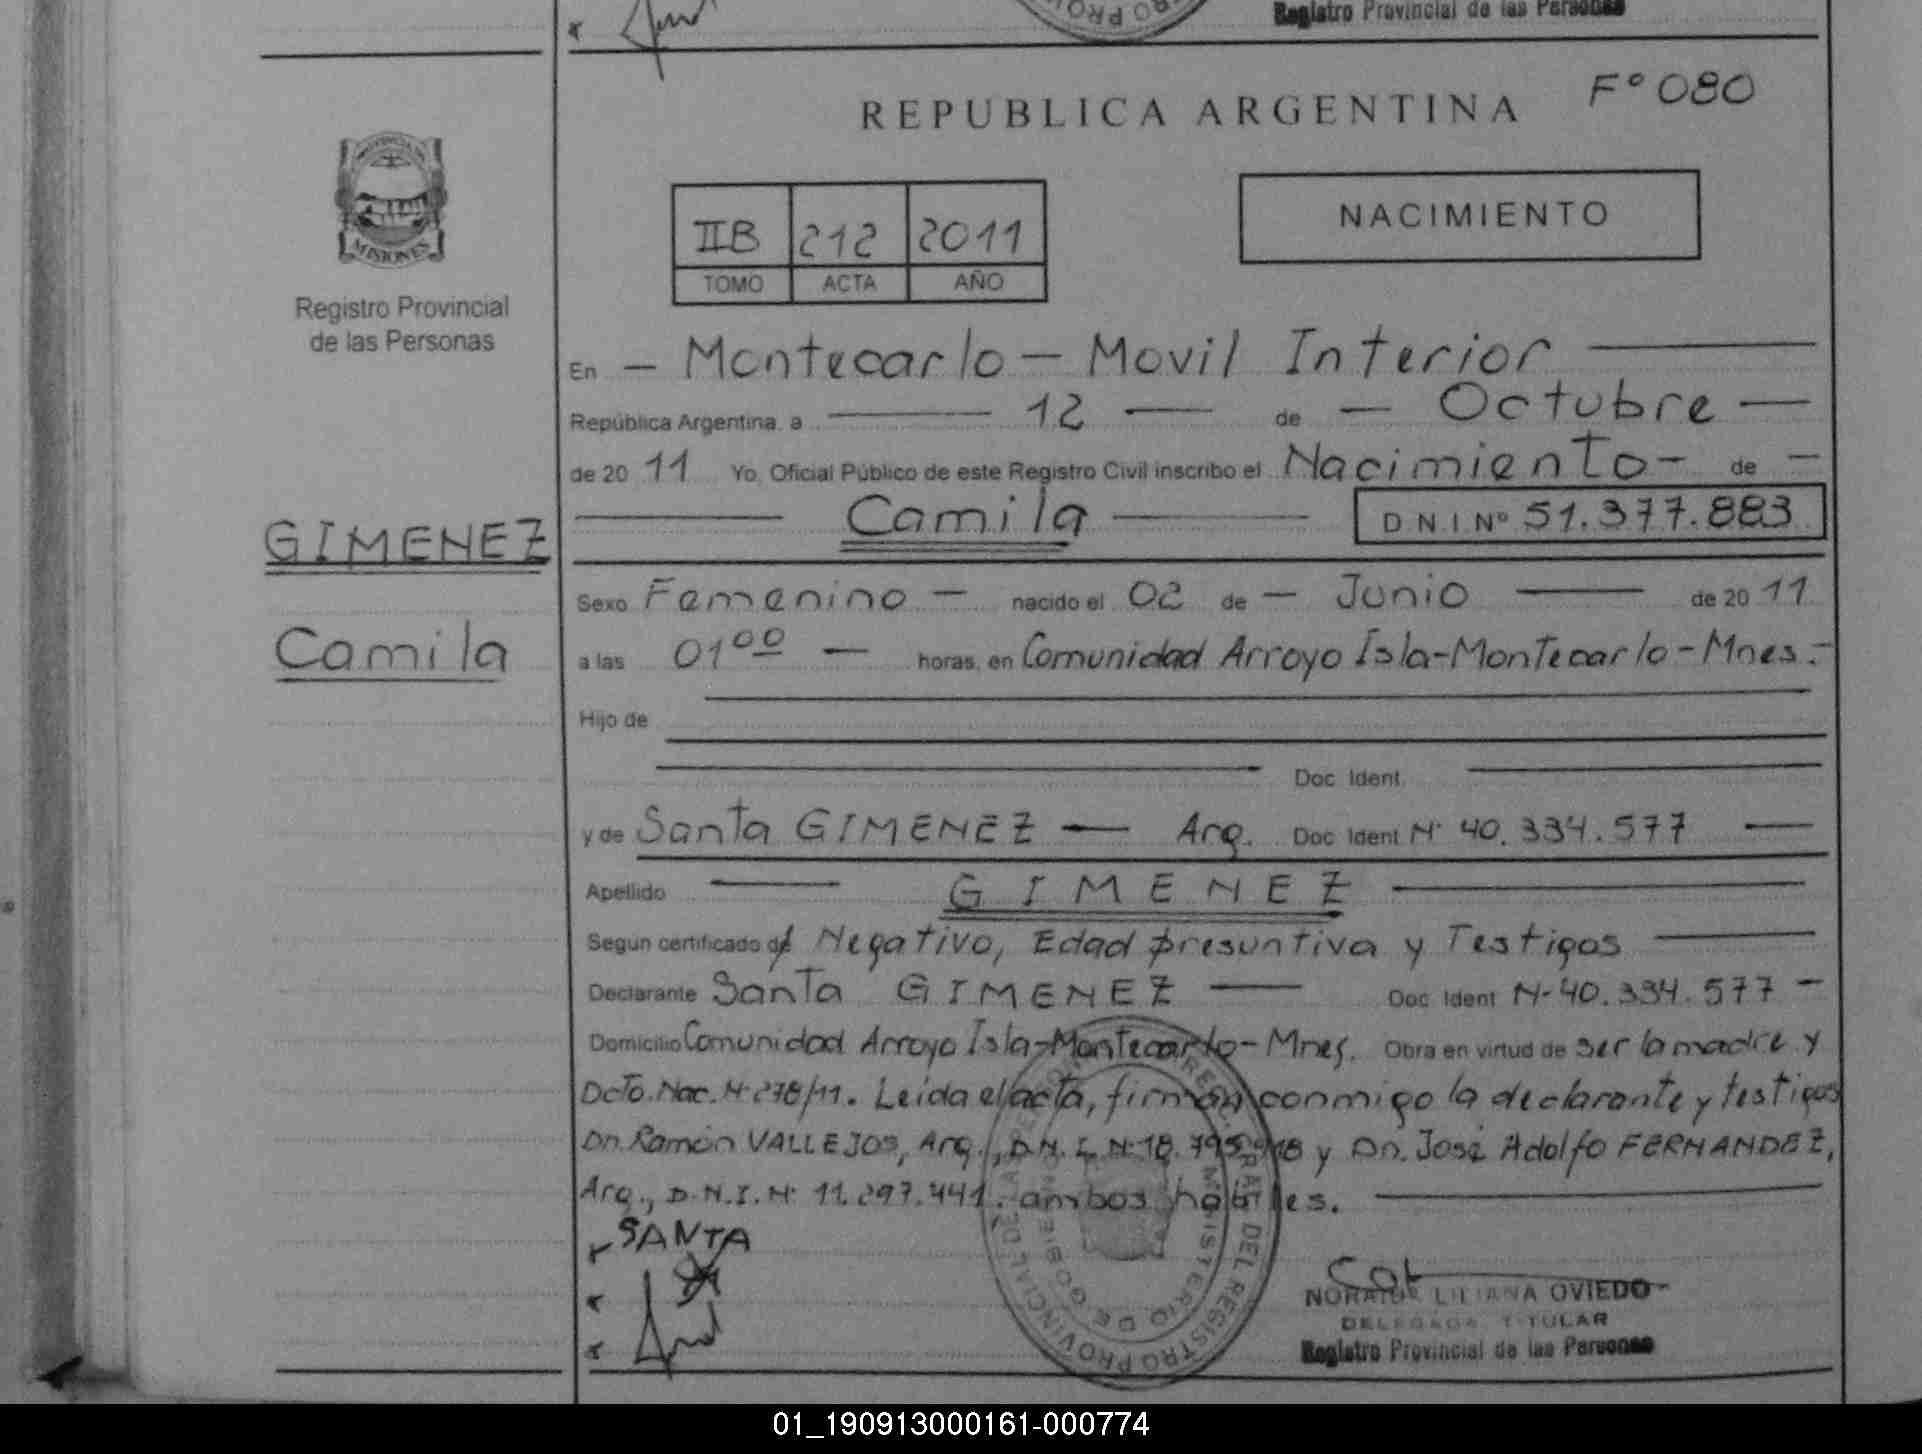 Registro Provincial de las Personas
REPUBLICA ARGENTINA
Fº 080
MISIONES
Registro Provincial
de las Personas
IIB 212 2011
TOMO ACTA AÑO
NACIMIENTO
En — Montecarlo — Movil Interior
República Argentina, a — 12 — de — Octubre —
de 20 11 Yo, Oficial Público de este Registro Civil inscribo el Nacimiento - de —
Camila D N I Nº 51.377.883
GIMENEZ
Camila
Sexo Femenino — nacido el 02 de — Junio — de 20 11
a las 01 00 — horas, en Comunidad Arroyo Isla-Montecarlo-Mnes.-
Hijo de
Doc Ident.
y de Santa GIMENEZ — Arg. Doc Ident Nº 40.334.577 —
Apellido — GIMENEZ —
Segun certificado de Negativo, Edad presuntiva y Testigos —
Declarante Santa GIMENEZ — Doc Ident Nº 40.334.577 —
Domicilio Comunidad Arroyo Isla-Montecarlo-Mnes. Obra en virtud de ser la madre y
Dcto. Nac. Nº 278/11. Leida el acta, firman conmigo la declarante y testigos
Dn. Ramón VALLEJOS, Arg., D.N.I. Nº 18.795.918 y Dn. José Adolfo FERNANDEZ,
Arg., D.N.I. Nº 11.297.441. ambos habiles.
SANTA
LILIANA OVIEDO
DELEGADA TITULAR
Registro Provincial de las Personas
01_190913000161-000774